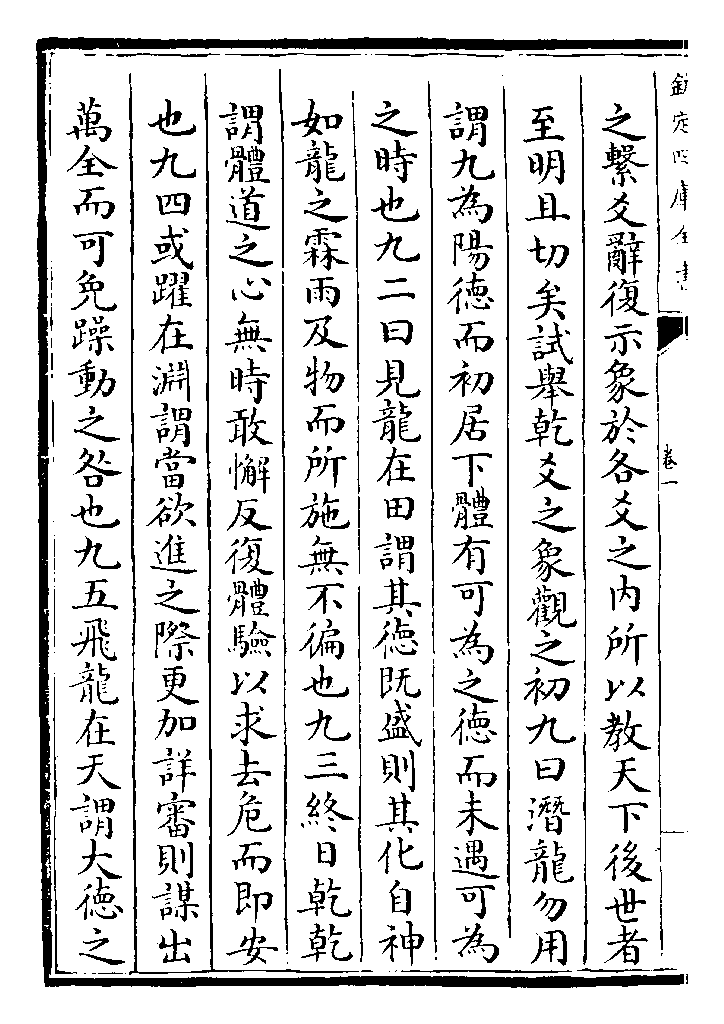 欽定四庫全書
卷一
之繫爻辭復示象於各爻之内所以教天下後世者
至明且切矣試舉乾爻之象觀之初九曰潛龍勿用
謂九為陽德而初居下體有可為之德而未遇可為
之時也九二曰見龍在田謂其德既盛則其化自神
如龍之霖雨及物而所施無不徧也九三終日乾乾
謂體道之心無時敢懈反復體驗以求去危而即安
也九四或躍在淵謂當欲進之際更加詳審則謀出
萬全而可免躁動之咎也九五飛龍在天謂大德之